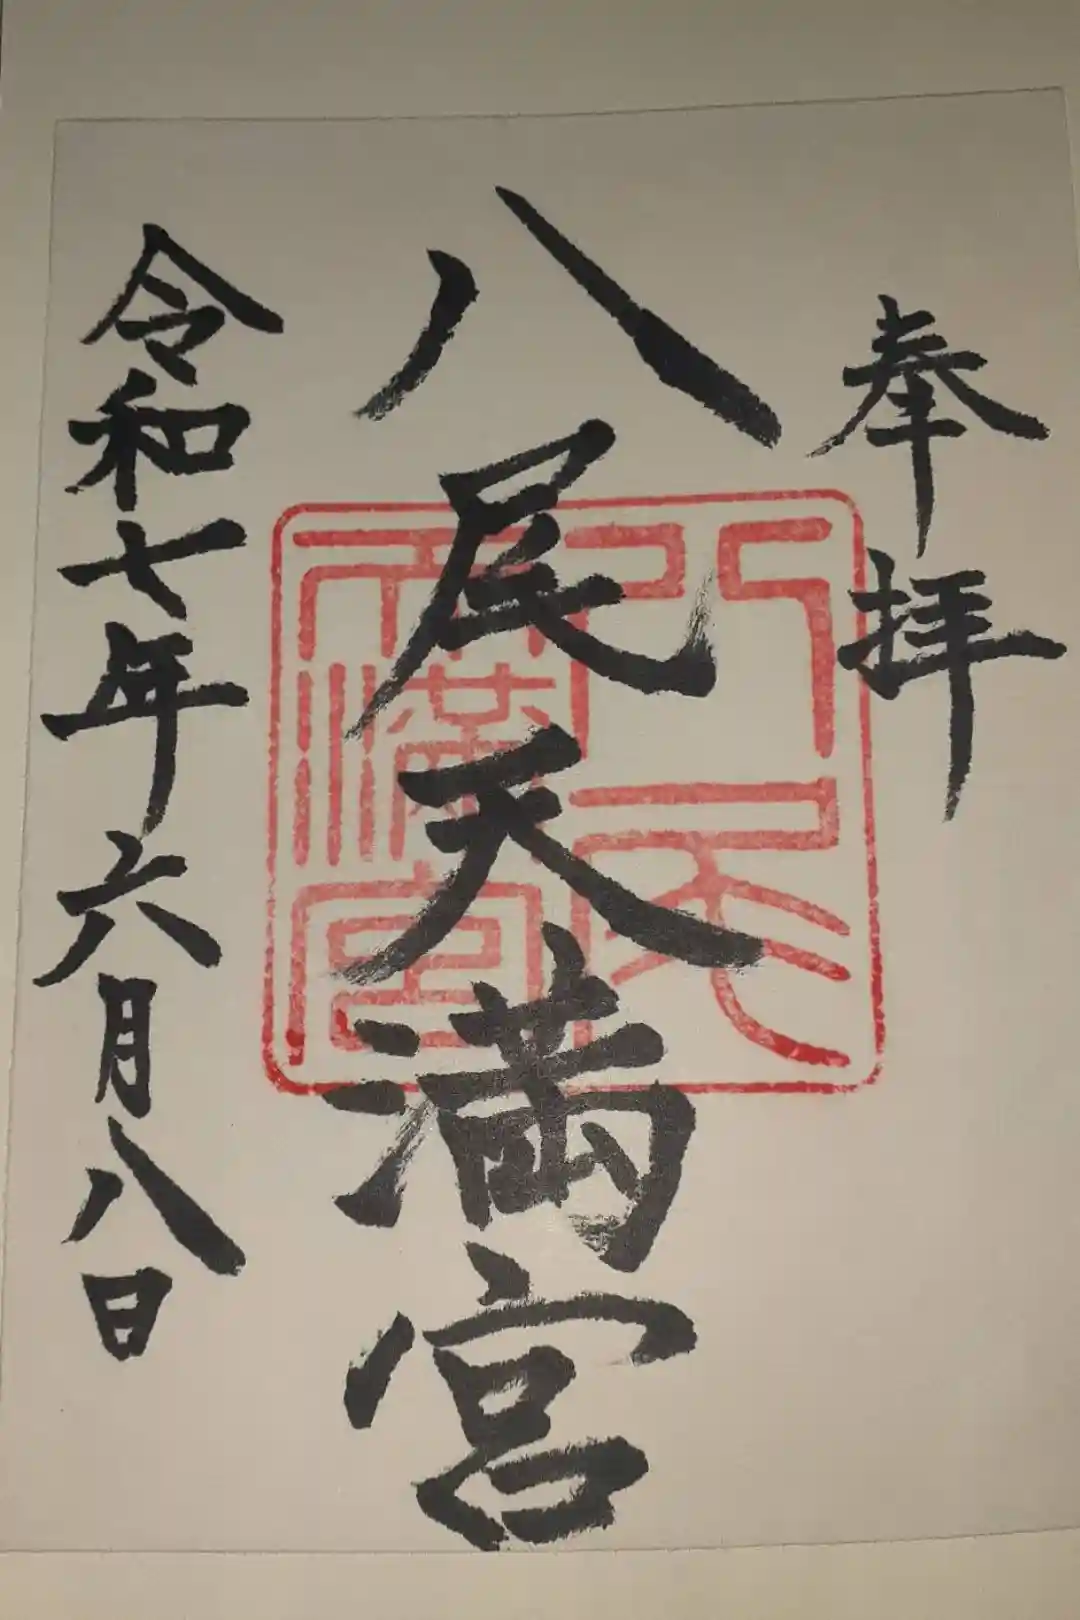 奉拝
八尾天満宮
令和七年六月八日
八尾天満宮